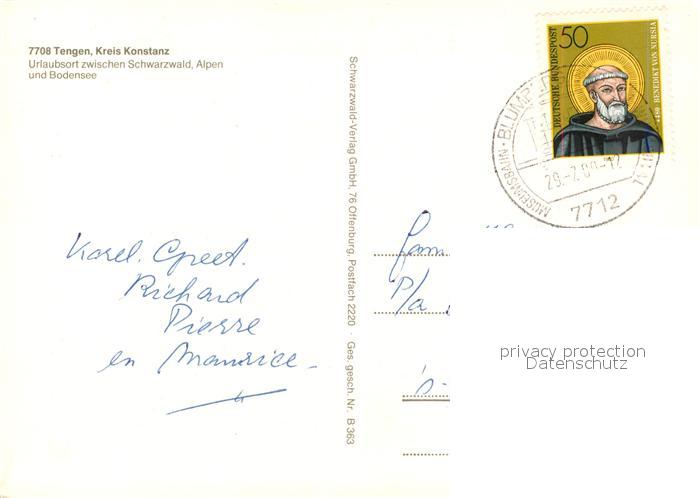 7708 Tengen, Kreis Konstanz
Urlaubsort zwischen Schwarzwald, Alpen
und Bodensee
Schwarzwald-Verlag GmbH, 76 Offenburg, Postfach 2220 · Ges. gesch. Nr. B 363
50
DEUTSCHE BUNDESPOST
*480 BENEDIKT VON NURSIA
MUSEUMSBAHN · BLUMB
7712
Karel. Greet.
Richard
Pierre
en Maurice
Fam
P/a
privacy protection
Datenschutz